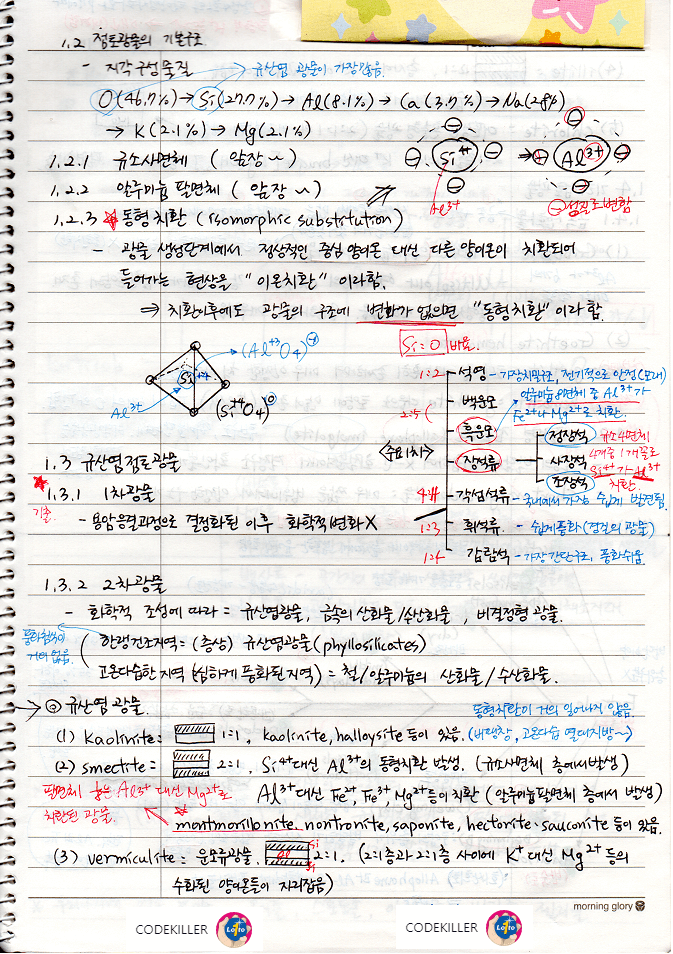 1.2 점토광물의 기본구조
- 지각구성물질 → 규산염 광물이 가장많음.
O(46.7%) → Si(27.7%) → Al(8.1%) → Ca(3.7%) → Na(2.8%)
→ K(2.1%) → Mg(2.1%)
⊖ Si⁴⁺ ⊖ ⇒ ⊕ Al³⁺ ⊖
Al³⁺
⊖성질로변함
1.2.1 규소사면체 (암장~)
1.2.2 알루미늄 팔면체 (암장~)
1.2.3 ★ 동형치환 (isomorphic substitution)
- 광물 생성단계에서 정상적인 중심 양이온 대신 다른 양이온이 치환되어
들어가는 현상을 "이온치환" 이라함.
⇒ 치환이후에도 광물의 구조에 변화가 없으면 "동형치환"이라 함.
Si=O 비율.
(Al⁺³O₄)⊖
Si⁺⁴
Al³⁺
(Si⁺⁴O₄)⁰
1:2 석영 - 가장치밀구조, 전기적으로 안정(모래)
백운모
2:5
흑운모
알루미늄8면체 중 Al³⁺가
Fe²⁺나 Mg²⁺로 치환.
장석류
정장석
사장석
조장석
규소4면체
4개중 1개꼴로
Si⁴⁺가 Al³⁺
치환.
4:11 각섬석류 - 국내에서 가장 쉽게 발견됨.
1:3 휘석류 - 쉽게풍화(검정의 광물)
1:4 감람석 - 가장간단구조, 풍화쉬움
1.3 규산염점토광물
★
1.3.1 1차광물
기출.
- 용암응결과정으로 결정화된 이후 화학적변화X
1.3.2 2차광물
- 화학적 조성에 따라 = 규산염광물, 금속의 산화물/수산화물, 비결정형 광물.
거의 없음.
한랭건조지역 = (층상) 규산염광물(phyllosilicates)
고온다습한 지역 (심하게 풍화된지역) = 철/알루미늄의 산화물/수산화물.
→ ⊙ 규산염 광물.
동형치환이 거의 일어나지 않음.
(1) kaolinite = 1:1, kaolinite, halloysite 등이 있음. (비팽창, 고온다습 열대지방~)
(2) smectite = 2:1, Si⁴⁺대신 Al³⁺의 동형치환 발생. (규소사면체 층에서발생)
Al³⁺대신 Fe²⁺, Fe³⁺, Mg²⁺등이 치환 (알루미늄팔면체 층에서 발생)
팔면체 층은 Al³⁺ 대신 Mg²⁺로
치환된 광물.
★
montmorillonite, nontronite, saponite, hectorite, sauconite 등이 있음.
(3) vermiculite = 운모류광물, Si Al Si 2:1. (2:1층과 2:1층 사이에 K⁺ 대신 Mg²⁺ 등의
수화된 양이온들이 자리잡음)
morning glory
CODEKILLER Lotto CODEKILLER Lotto